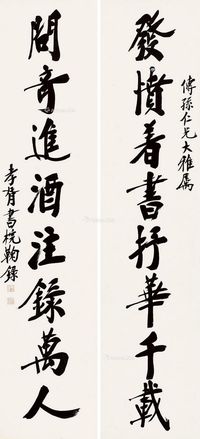 傳孫仁兄大雅属
發憤着書抒華千載
問奇進酒注錄萬人
孝胥書梡鞠錄